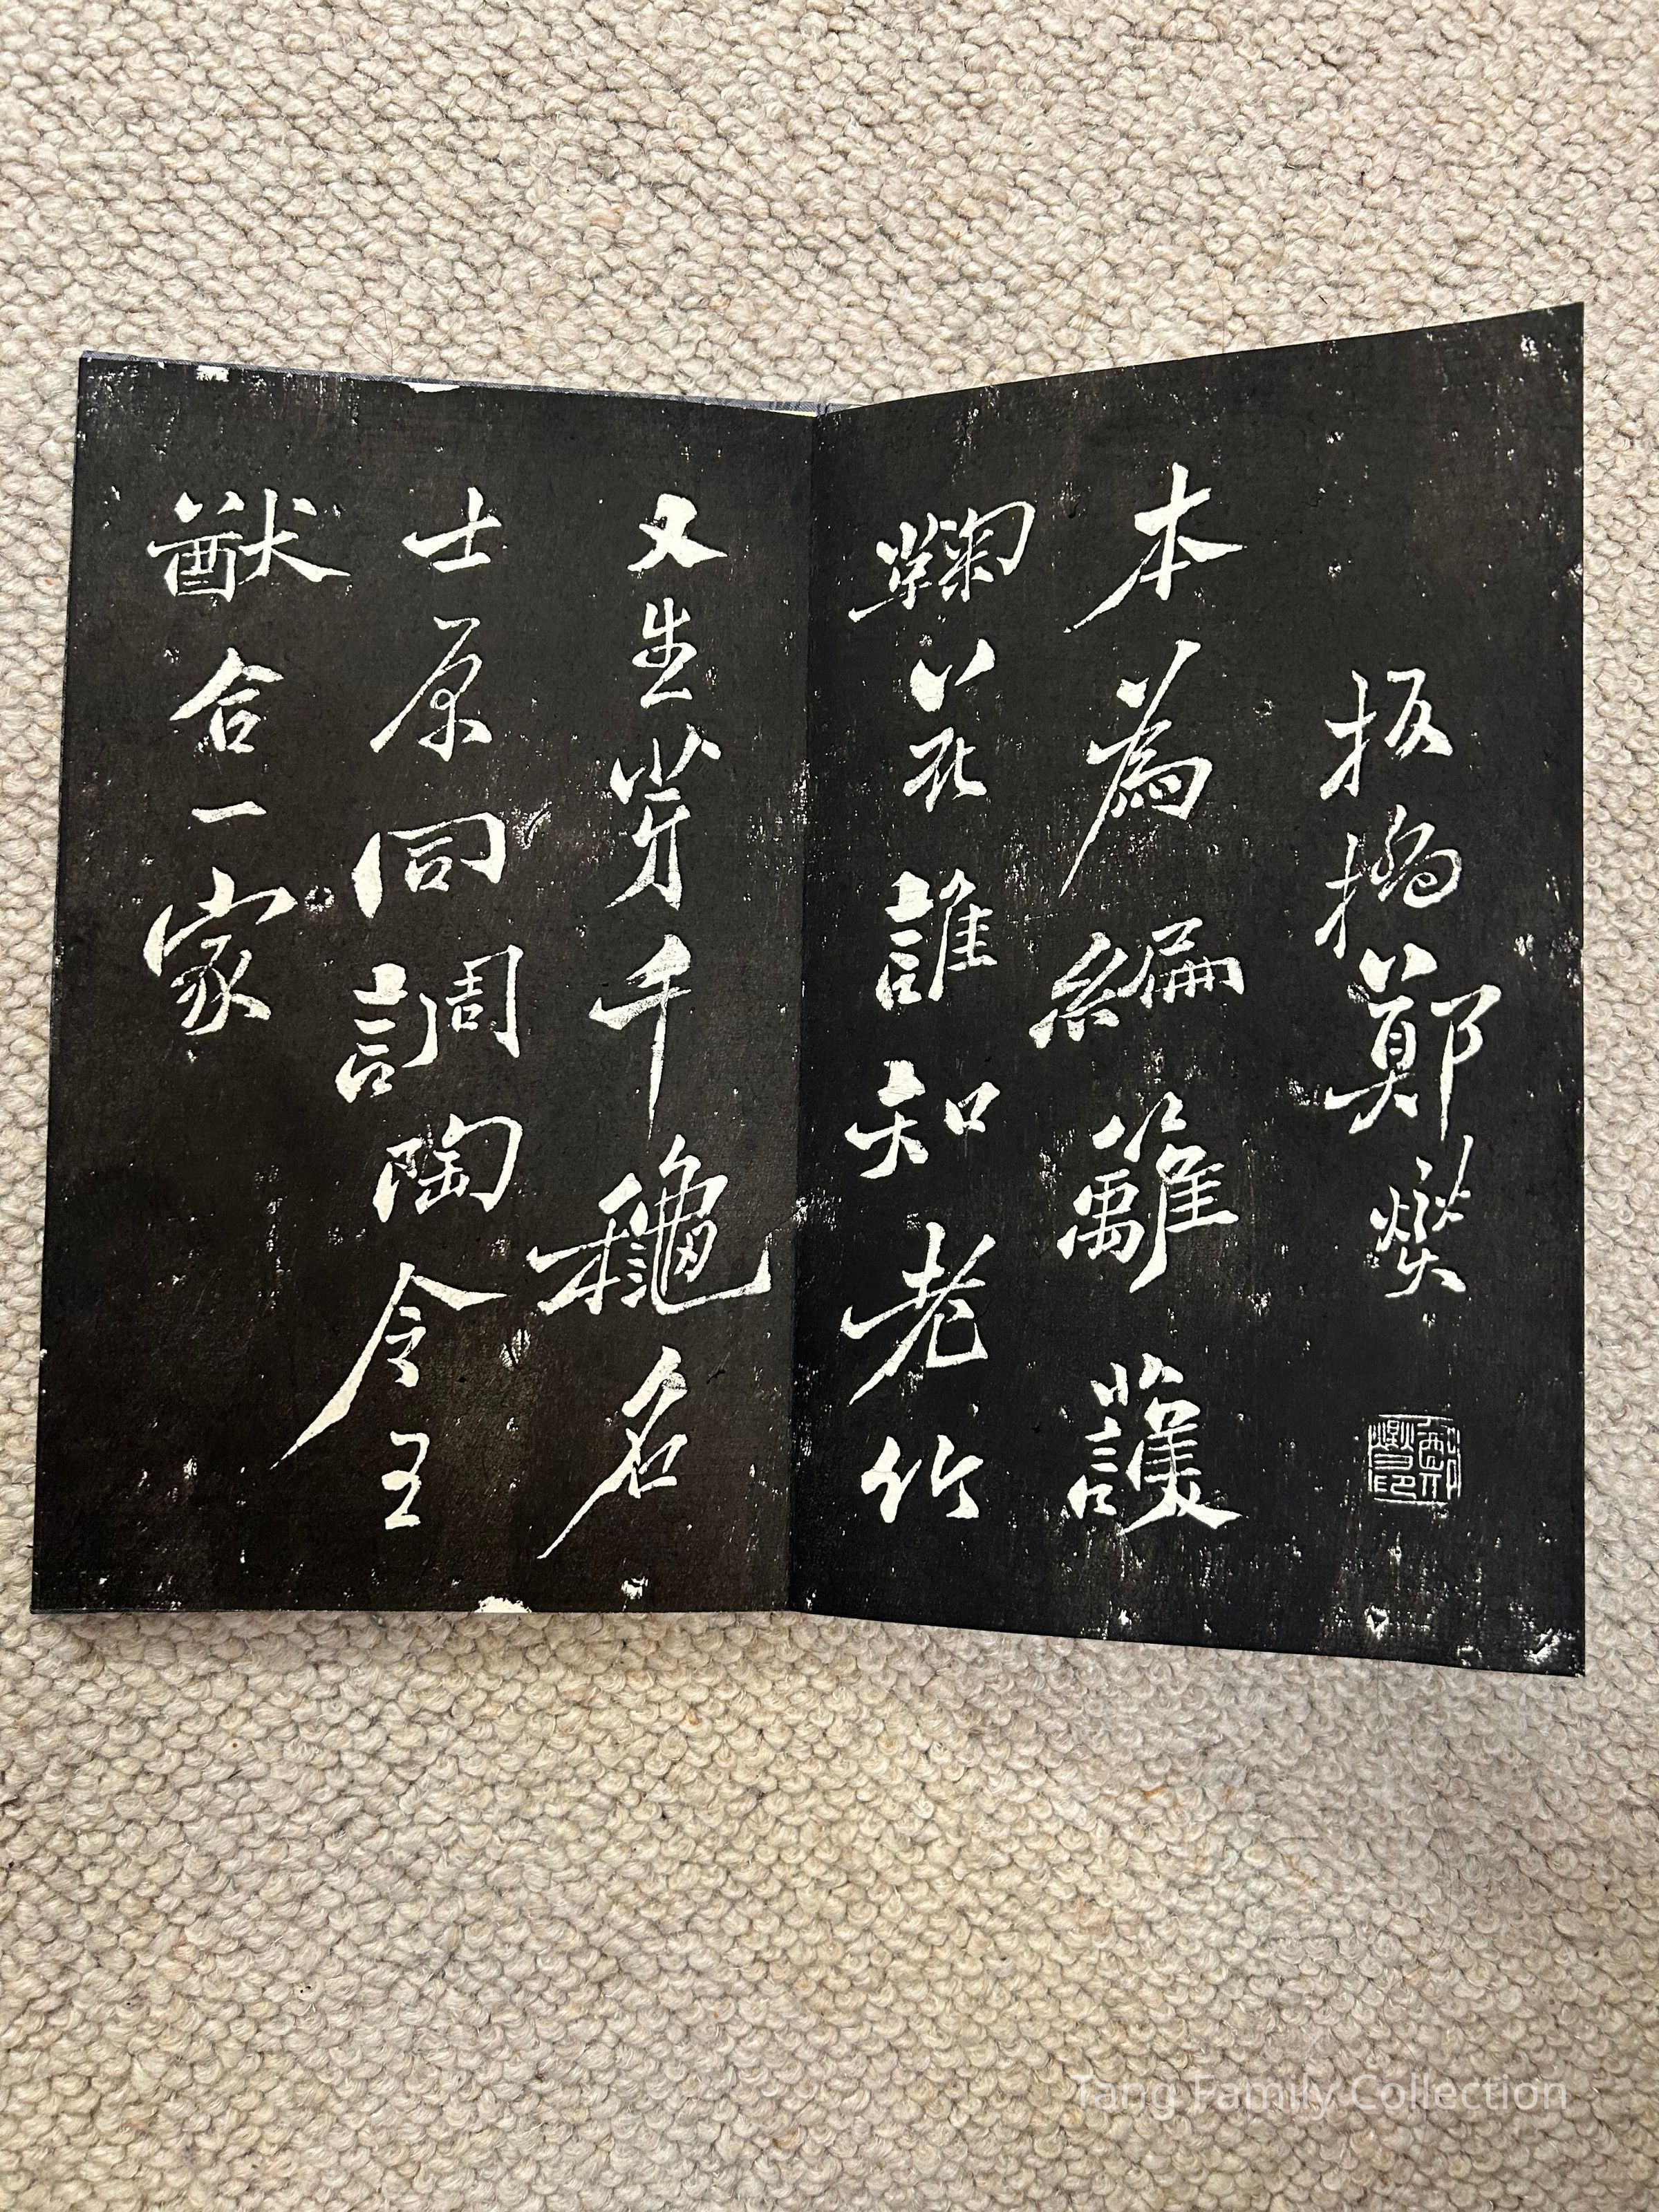 板橋鄭燮
本為編籬護
鞠花誰知老竹
又生芽千穐名
士原同調陶令王
猷合一家
Tang Family Collection